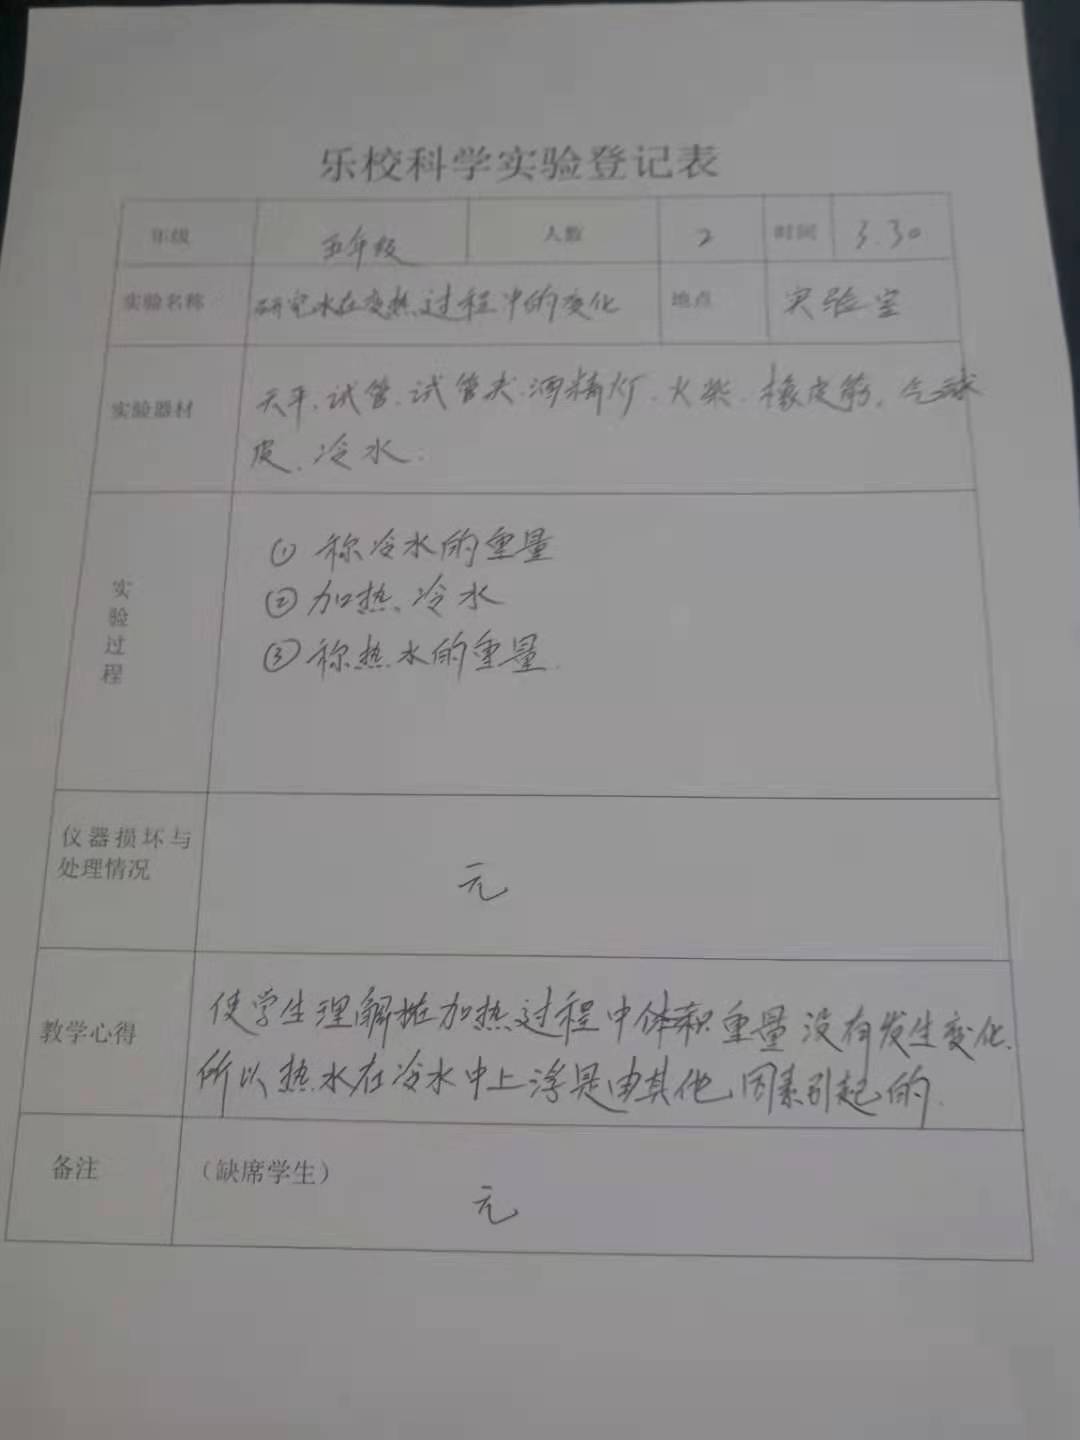 乐校科学实验登记表
年级 五年级 人数 2 时间 3.30
实验名称 研究水在变热过程中的变化 地点 实验室
实验器材 天平、试管、试管夹、酒精灯、火柴、橡皮筋、气球
皮、冷水.
实验过程
① 称冷水的重量
② 加热冷水
③ 称热水的重量.
仪器损坏与
处理情况
无
教学心得
使学生理解在加热过程中体积重量没有发生变化.
所以热水在冷水中上浮是由其他因素引起的.
备注 （缺席学生）
无